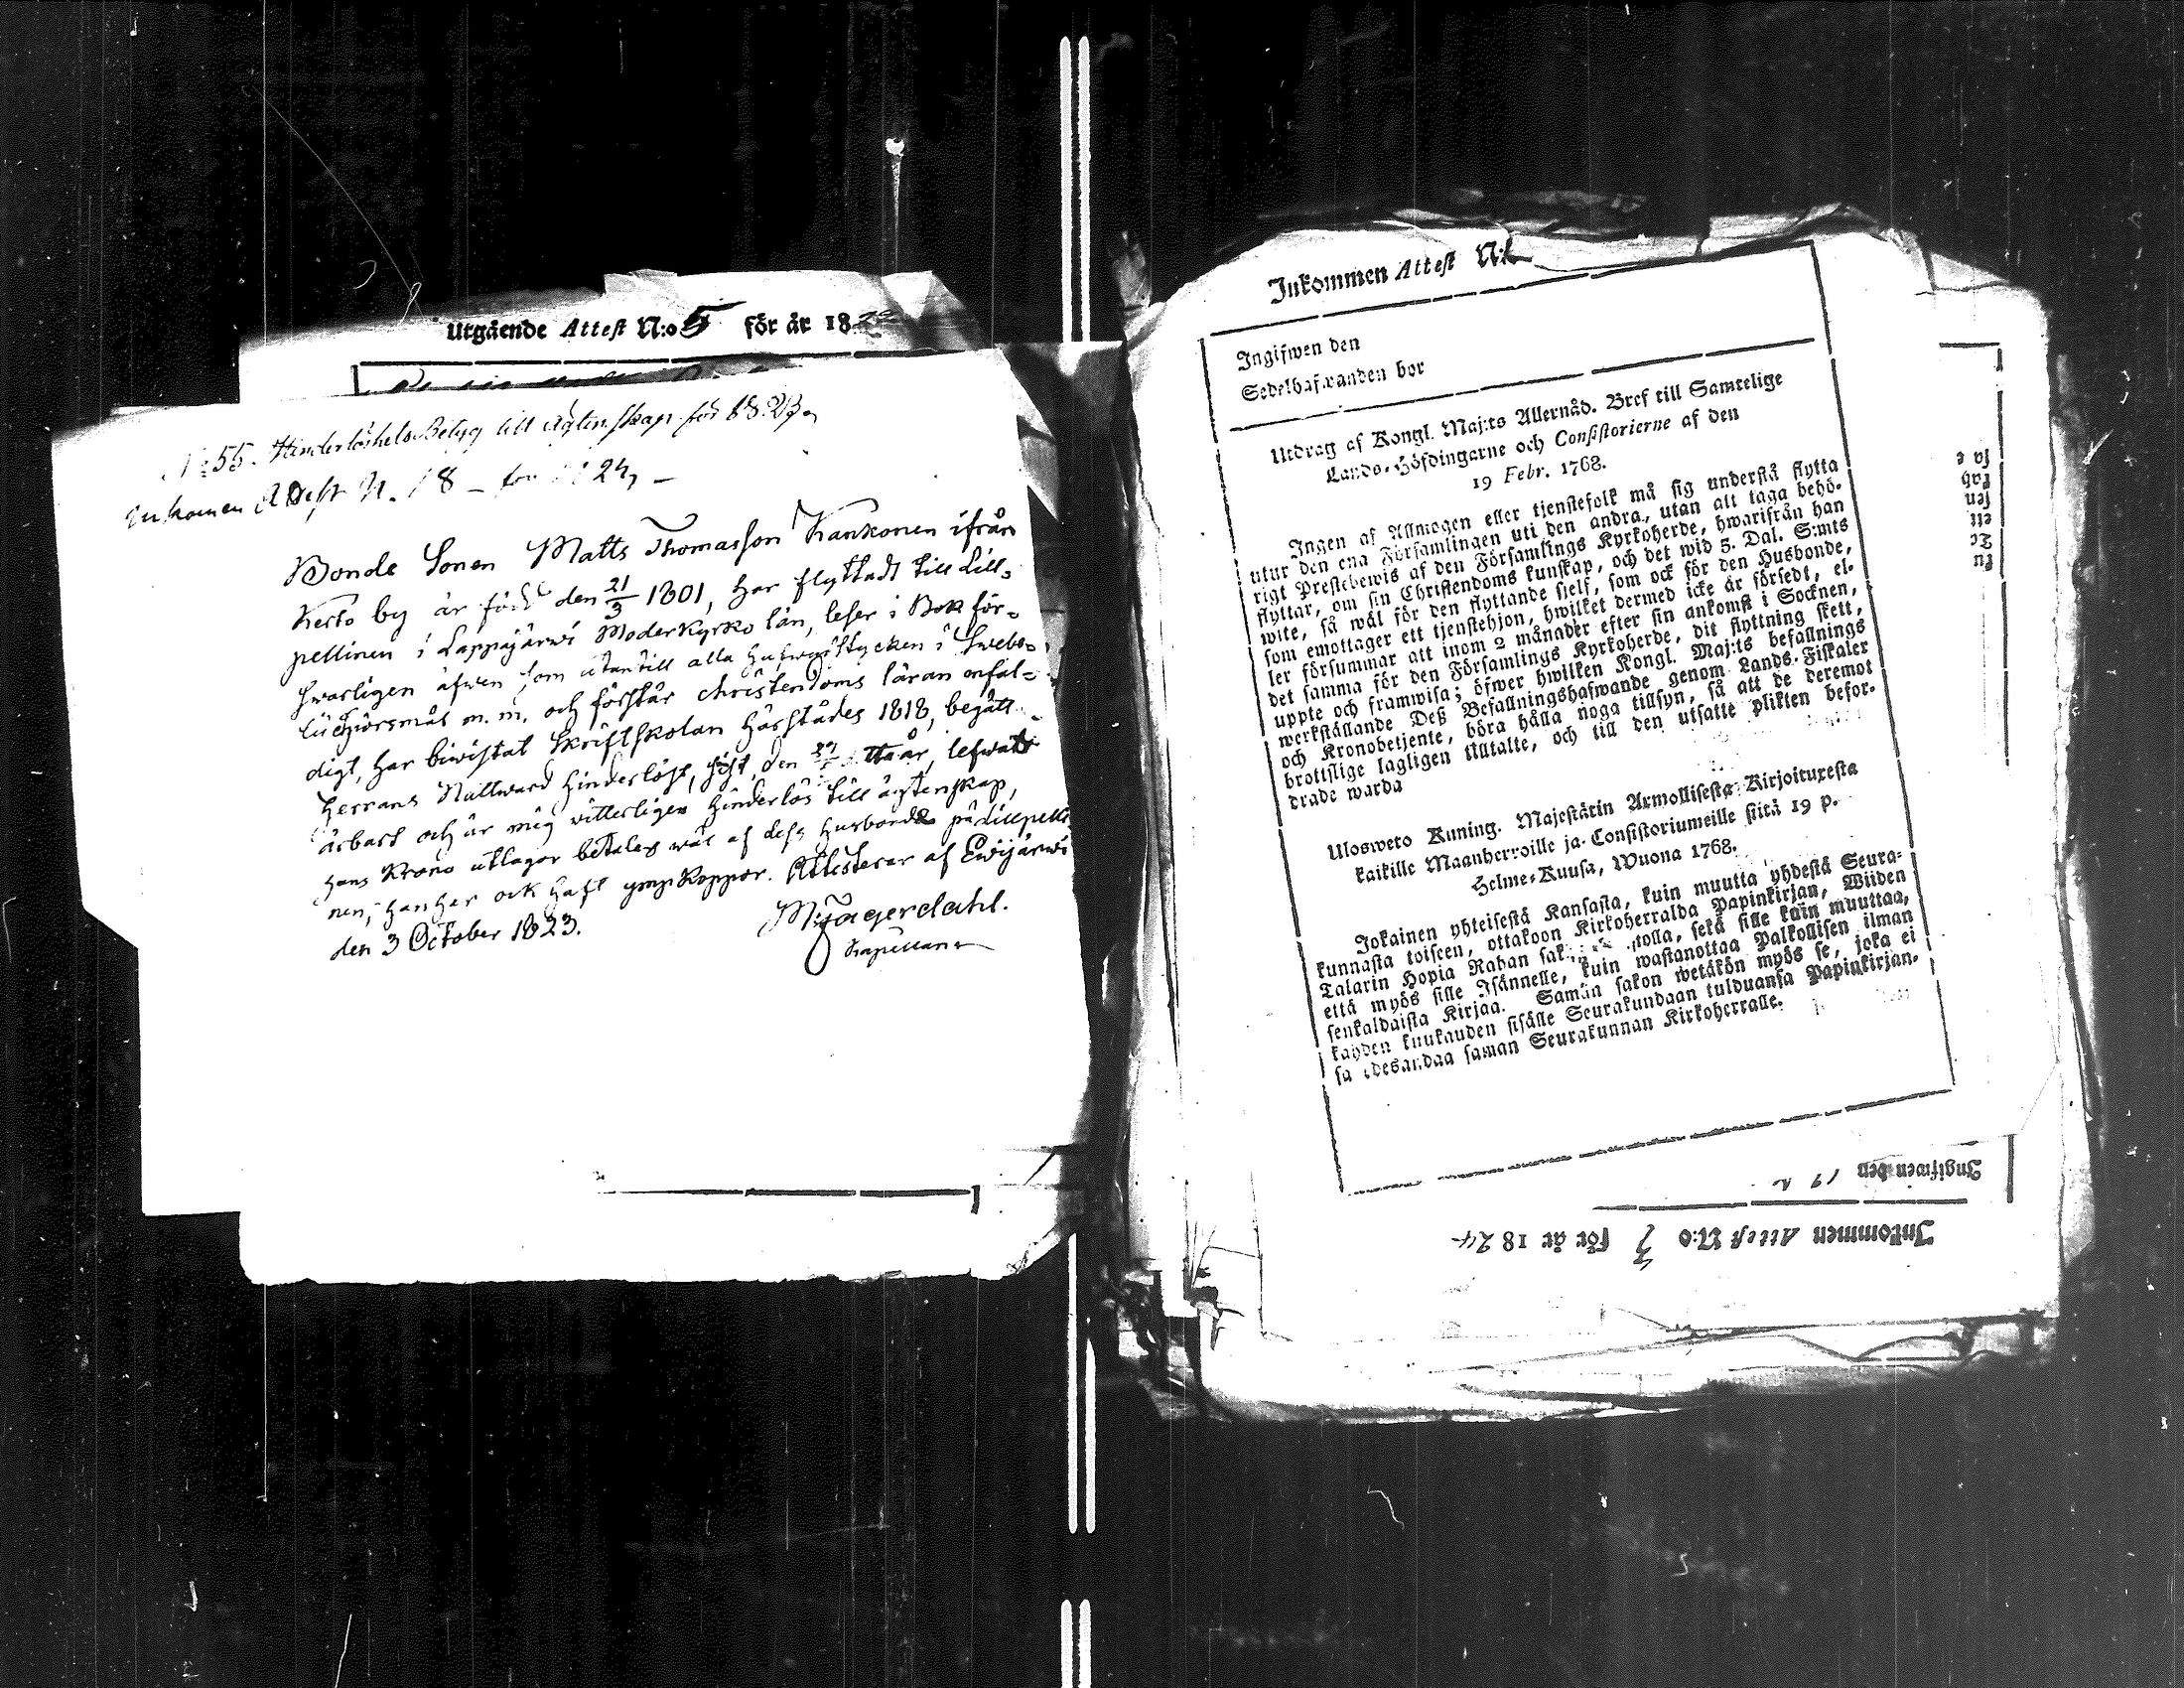 Utgående Attest N:o 5 för år 1822
N:o 55. Hinderlöshets Betyg till ägtenskap för 1823.
Inkommen Attest N. 18 – för 1824, –
Bonde Sonen Matts Thomasson Kankonen ifrån
Kerto by är född den 21/3 1801, har flyttadt till Lill-
pellinen i Lappajärwi Moderkyrko län, leser i Bok för-
swarligen äfwen som utantill alla hufwustycken i Swebe-
lii spörsmål m.m. och förstår christendoms läran enfal-
digt, har biwistat Skriftskolan härstädes 1818, begått
Herrans Nattward hinderlöst, sist den detta år, lefwat
ärbart och är mig witterligen hinderlös till ägtenskap,
hans Krono utlagor betales wäl af dess husbonde på Lillpelli-
nen, han har ock haft ymp Koppor. Attesterar af Ewijärwi
den 3 October 1823.
M: Fagerdahl.
Kapellan
Inkommen Attest N:o
Ingifwen den
Sedelhafwanden bor
Utdrag af Kongl. Maj:ts Allernåd. Bref till Samtelige
Lands-Höfdingarne och Consistorierne af den
19 Febr. 1768.
Ingen af Allmogen eller tjenstefolk må sig understå flytta
utur den ena Församlingen uti den andra, utan att taga behö-
rigt Prestebewis af den Församlings Kyrkoherde, hwarifrån han
flyttar, om sin Christendoms kunskap, och det wid 5. Dal. S:mts
wite, så wäl för den flyttande sjelf, som ock för den Husbonde,
som emottager ett tjenstehjon, hwilket dermed icke är försedt, el-
ler försummar att inom 2 månader efter sin ankomst i Socknen,
det samma för den Församlings Kyrkoherde, dit flyttning skett,
uppte och framwisa; öfwer hwilken Kongl. Maj:ts befallnings
werkställande Deß Befallningshafwande genom Lands-Fiskaler
och Kronobetjente, böra hålla noga tillsyn, så att de deremot
brottslige lagligen tilltalte, och till den utsatte plikten befor-
drade warda
Ulosweto Kuning. Majestätin Armollisesta Kirjoituxesta
kaikille Maanherroille ja Consistoriumeille siitä 19 p.
Helme-Kuusa, Wuona 1768.
Jokainen yhteisestä Kansasta, kuin muutta yhdestä Seura-
kunnasta toiseen, ottakoon Kirkoherralda Papinkirjan, Wiiden
Talarin Hopia Rahan sakon wetolla, sekä sille kuin muuttaa,
että myös sille Isännelle, kuin wastanottaa Palkollisen ilman
senkaldaista Kirjaa. Samän sakon wetäkön myös se, joka ei
kahden kuukauden sisälle Seurakundaan tulduansa Papinkirjan-
sa edesandaa saman Seurakunnan Kirkoherralle.
Ingifwen den
Inkommen Attest N:o 7 för år 1824